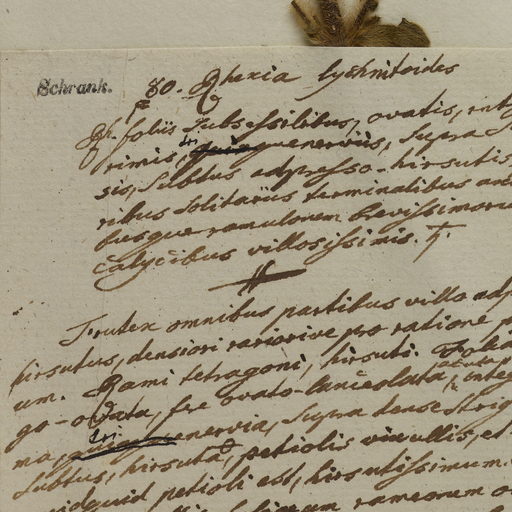 Schrank.
80. Rhexia lyshnitoides
Rh. foliis subsessilibus, ovatis, int
rimis, tri quinquenerviis, supra s
sis, subtus adpresso-hirsutis,
ribus solitariis terminalibus
busque ramulorum brevissimoru
calycibus villosissimis. ♄.
Frutex omnibus partibus villo adp
hirsutus, densiori rariorive pro ratione p
um. Rami tetragoni, hirsuti. Folia
go-ovata, fere ovato-lanceolata, acuta, integ
ma, tri nervia, supra dense strig
subtus, hirsuta, petiolis vix ullis, et
quidquid petioli est, hirsutissimum.
rameorum